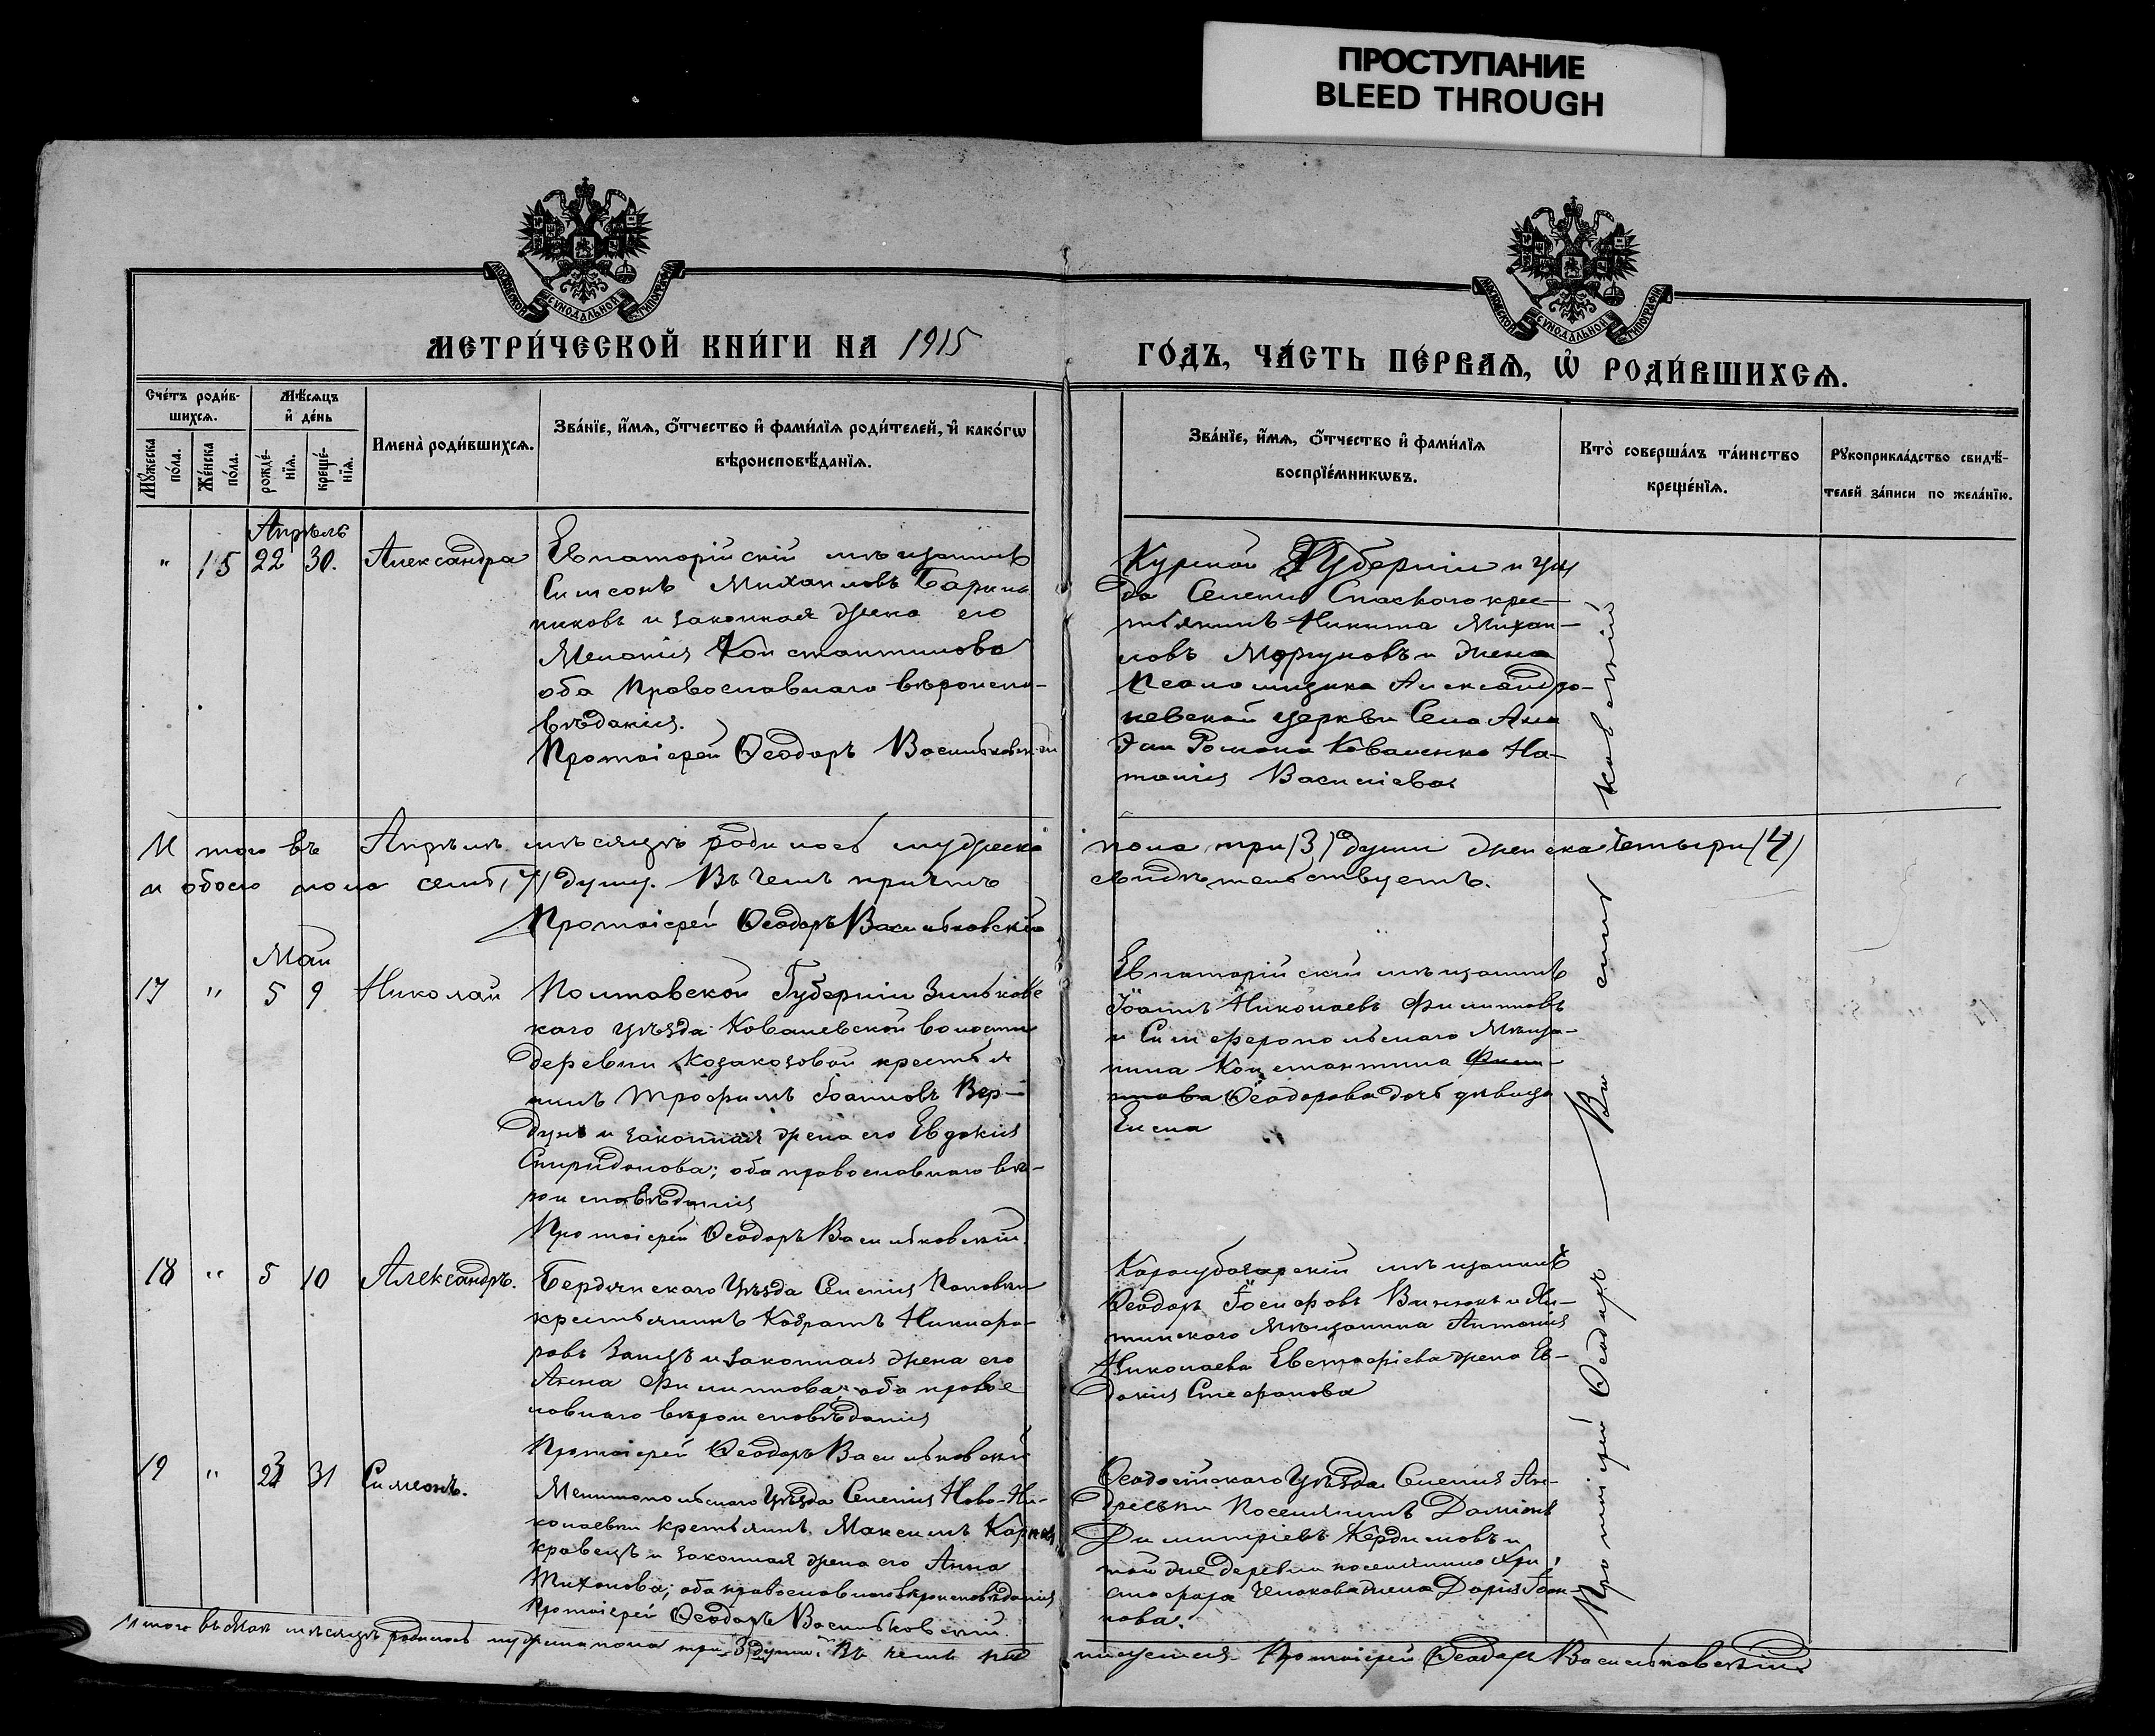 ПРОСТУПАНИЕ
BLEED THROUGH
МОСКОВСКОЙ СУНОДАЛЬНОЙ ТИПОГРАФІИ
МОСКОВСКОЙ СУНОДАЛЬНОЙ ТИПОГРАФІИ
МЕТРИ́ЧЕСКОЙ КНИ́ГИ НА 1915
ГО́ДЪ, ЧА́СТЬ ПЕ́РВАѦ, Ѡ҆ РОДИ́ВШИХСѦ.
Сче́тъ роди́в-
шихсѧ.
Мꙋ́жеска по́ла.
Же́нска по́ла.
Мѣ́сѧцъ
и҆ де́нь
рожде́-
нїѧ.
креще́-
нїѧ.
Имена̀ роди́вшихсѧ.
Зва́нїе, и҆́мѧ, ѻ҆́тчество и҆ фами́лїѧ роди́телей, и҆ како́гѡ
вѣроисповѣ́данїѧ.
Зва́нїе, и҆́мѧ, ѻ҆́тчество и҆ фами́лїѧ
воспрїе́мникѡвъ.
Кто̀ соверша́лъ та́инство
креще́нїѧ.
Рꙋкоприкла́дство свидѣ́-
телей за́писи по жела́нїю.
Апрѣль
" 15 22 30. Александра
Евпаторійскій мѣщанинъ
Симеонъ Михаиловъ
никовъ и законная жена его
Меланія Константинова
оба Православнаго вѣроиспо-
вѣданія.
Протоіерей Ѳеодоръ Васильковскій
Курской Губерніи и уѣз
да Селенія Спаскаго крес-
тьянинъ Никита Михаи-
ловъ Моргуновъ и жена
Псаломщика Александро-
невской церкви Села
Романа Коваленко На-
талія Василіева
Итого въ Апрѣлѣ мѣсяцѣ родилось мужеска
пола три (3) души женска четыри (4)
и обоего пола семь (7) душъ. Въ чемъ причтъ
свидѣтельствуетъ.
Протоіерей Ѳеодоръ Васильковскій
Май
17 " 5 9 Николай
Полтавской Губерніи Зиньковс
каго уѣзда Ковалевской волости
деревни Козаковой крестья
нинъ Трофимъ Іоанновъ Вер-
дунъ и законная жена его Евдокія
Спиридонова; оба православнаго вѣ-
роисповѣданія
Протоіерей Ѳеодоръ Васильковскій.
Евпаторійскій мѣщанинъ
Іоаннъ Николаевъ Филиповъ
и Симферопольскаго Мѣща-
нина Константина Фили-
пова Ѳеодорова дочь дѣвица
Елена
18 " 5 10 Александръ.
Бердянскаго Уѣзда Селенія Поповки
крестьянинъ Кодратъ Никифо-
ровъ Заецъ и законная жена его
Анна Филиппова; оба правос
лавнаго вѣроисповѣданія
Протоіерей Ѳеодоръ Васильковскій
Карасубазарскій мѣщанинъ
Ѳеодоръ Іосифовъ и Ял-
тинскаго Мѣщанина Антонія
Николаева Евстафіева жена Ев-
докія Стефанова
19 " 31 Симеонъ.
Мелитопольскаго Уѣзда Селенія Ново-Ни-
колаевки крестьянинъ Максимъ
кравецъ и законная жена его Анна
Тихонова; оба православнаго вѣроисповѣданія
Протоіерей Ѳеодоръ Васильковскій.
Ѳеодосійскаго Уѣзда Селенія Ан-
дреевки Поселянинъ Даміанъ
Димитріевъ Кердимовъ и
той же деревни поселянина Хри-
стофора жена Дарія Іоан-
нова.
Протоіерей Ѳеодоръ — Васильковскій
Итого въ Маѣ мѣсяцѣ родилось мужеска пола три (3) души. Въ чемъ под
писуемся Протоіерей Ѳеодоръ Васильковскій.